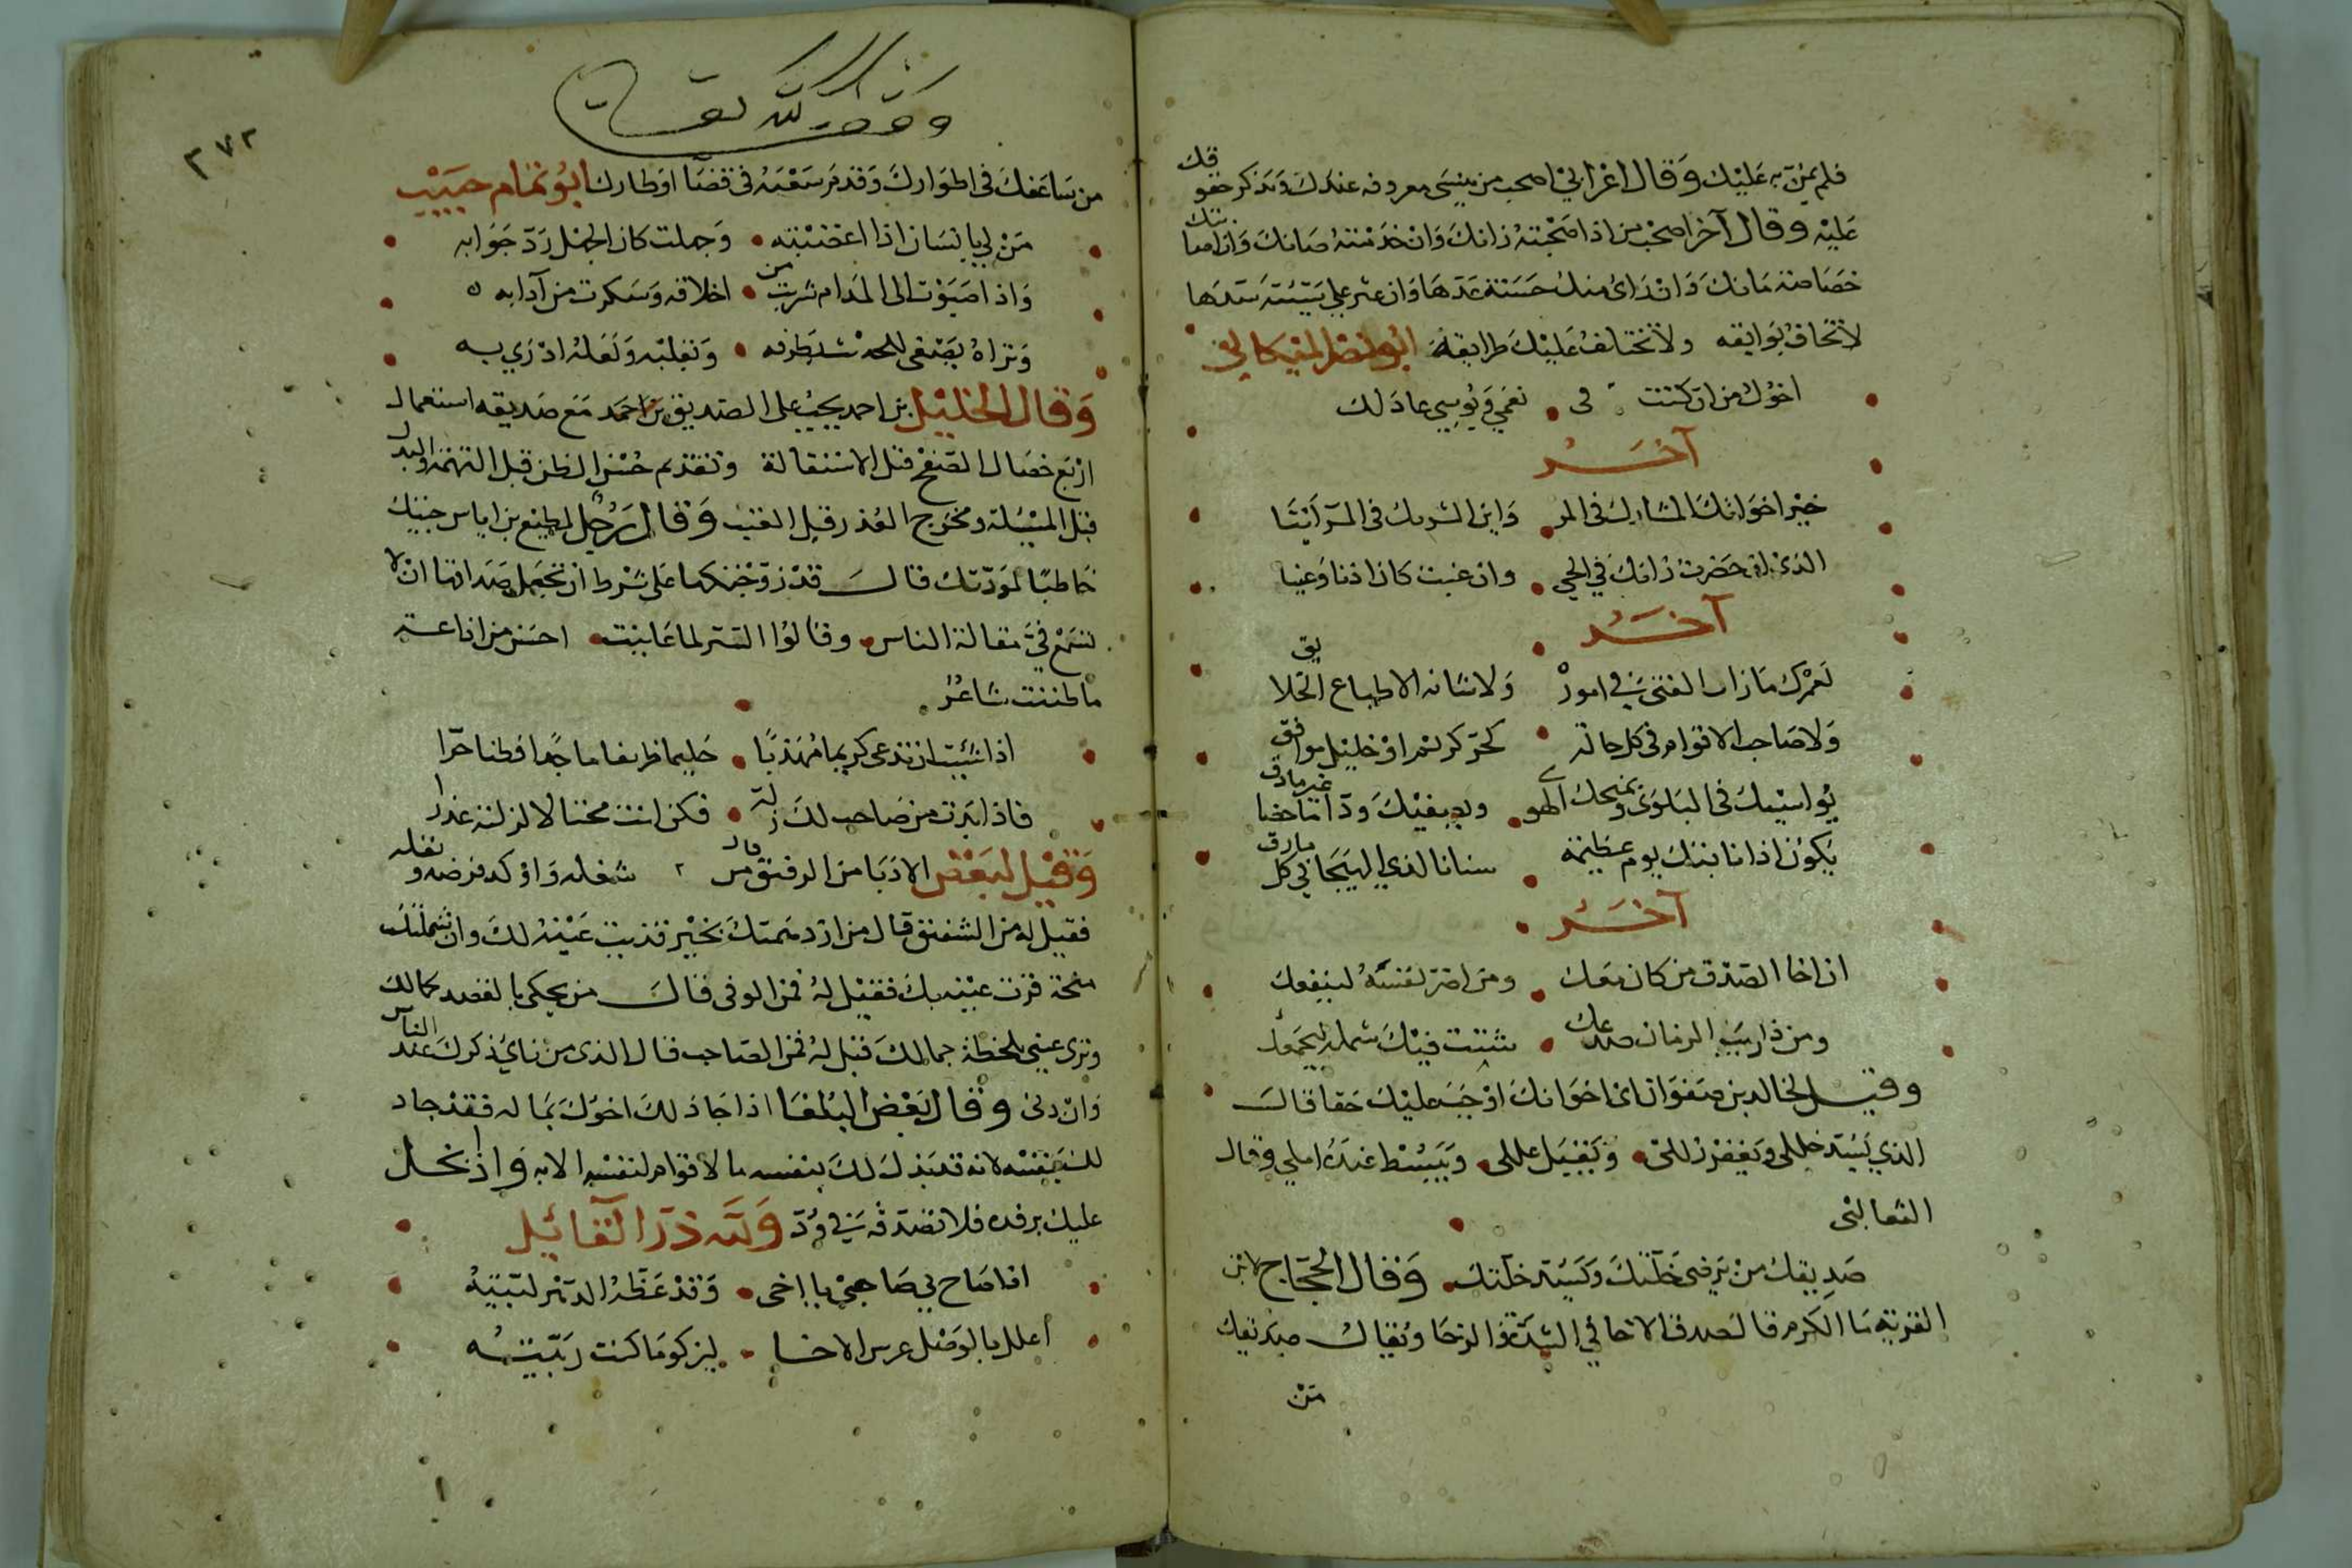 فلم يمنّ به عليك وقال اعرابي اصحب من ينسى معروفه عندك وتذكر حقوقك
عليه وقال آخر اصحب من اذا صحبته زانك وان خدمته صانك وان اصابتك
خصاصة مانك وان رأى منك حسنة عدها وان عثر على سيئة سدها
لا تخاف بوايقه ولا تختلف عليك طرايقه ابو النصر الميكالي
اخوك من ان كنت في نعمى وبوسى عادلك
آخر
خير اخوانك المشارك في المر واين الشريك في المر أينا
الذي ان حضرت زانك في الحي وان غبت كان اذنا وعينا
آخر
لعمرك ما زان الفتى في امور ولا شانه الا طباع الخلايق
ولا صاحب الاقوام في كل حالة كحر كريم او خليل موافق
يواسيك في البلوى ويمنحك الهوى ويصفيك ودا ماحضا غير ماذق
يكون اذا نابتك يوم عظيمة سنانا لذي الهيجا في كل مارق
آخر
ان اخا الصدق من كان معك ومن اضر نفسه لينفعك
ومن اذا ريب الزمان صدعك شتت فيك شمله ليجمعك
وقيل لخالد بن صفوان اي اخوانك اوجب عليك حقا قال
الذي يسد خللى ويغفر زللى ويقبل عللى ويبسط عنده املي وقال
الثعالبى
صديقك من يرضى خلتك ويسد خلتك وقال الحجاج لابن
القرية ما الكرم قال صدق الاخا في الشدة والرخا ويقال صديقك
من
وقف لله تعالى
٣٧٢
من ساعفك في اطوارك وقدم سعيه في قضا اوطارك ابو تمام حبيب
من لي بانسان اذا اغضبته وجهلت كان الحلم رد جوابه
واذا صبوت الى المدام شربت من اخلاقه وسكرت من آدابه
وتراه يصغى للحديث بطرفه وبقلبه ولعله ادرى به
وقال الخليل بن احمد يجب على الصديق مع صديقه استعمال
اربع خصال الصفح قبل الاستقالة وتقديم حسن الظن قبل التهمة والبذل
قبل المسئلة ومخرج العذر قبل العتب وقال رجل لمطيع بن اياس جيتك
خاطبا لمودتك قال قد زوجتكها على شرط ان تجعل صداقها ان لا
تسمع في مقالة الناس وقالوا الستر لما عاينت احسن من اذاعة
ما ظننت شاعر
اذا شئت ان تدعى كريما مهذبا حليما ظريفا ماجدا فطنا حرا
فاذا بدت من صاحب لك زلة فكن انت محتالا لزلته عذرا
وقيل لبعض الادبا من الرفيق قال من شغله واوكد فرضه ونفله
فقيل له من الشفيق قال من ان دهمتك بخير قذيت عينه لك وان شملتك
منحة قرت عينه بك فقيل له فمن الوفى قال من يحكى بالفضد كمالك
وترى عيني بلحظه جمالك قيل له فمن الصاحب قال الذى من نائ يذكرك عند الناس
وان دنى وقال بعض البلغا اذا جاد لك اخوك بماله فقد جاد
لك بنفسه لانه قد بذل لك بنفسه ما لا قوام لنفسه الا به واذا بخل
عليك برفده فلا تصدقه في ود ولله در القائل
اذا صاح بي صاحبي يا اخى وقد عظه الدهر لبيته
أعلل بالوصل غرس الاخا ليزكو ما كنت ربيته